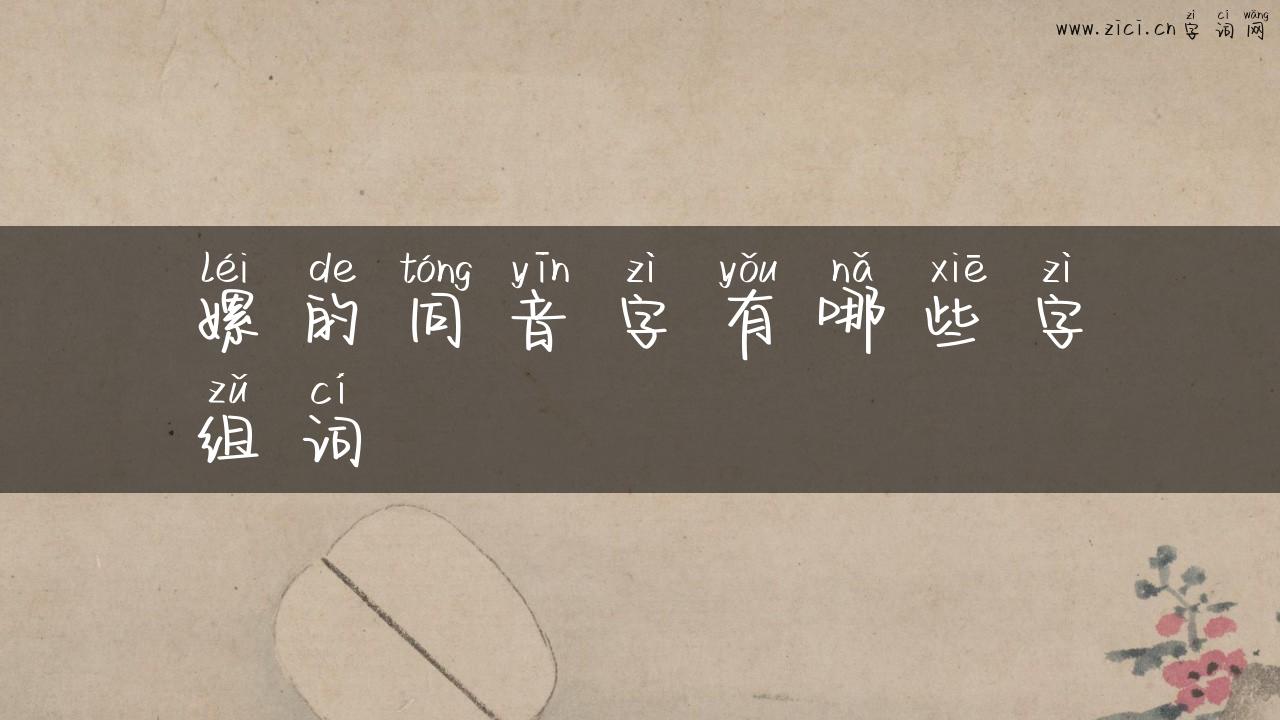 zì cí wǎng
www.zici.cn字词网
léi de tóng yīn zì yǒu nǎ xiē zì
嫘的同音字有哪些字
zǔ cí
组词